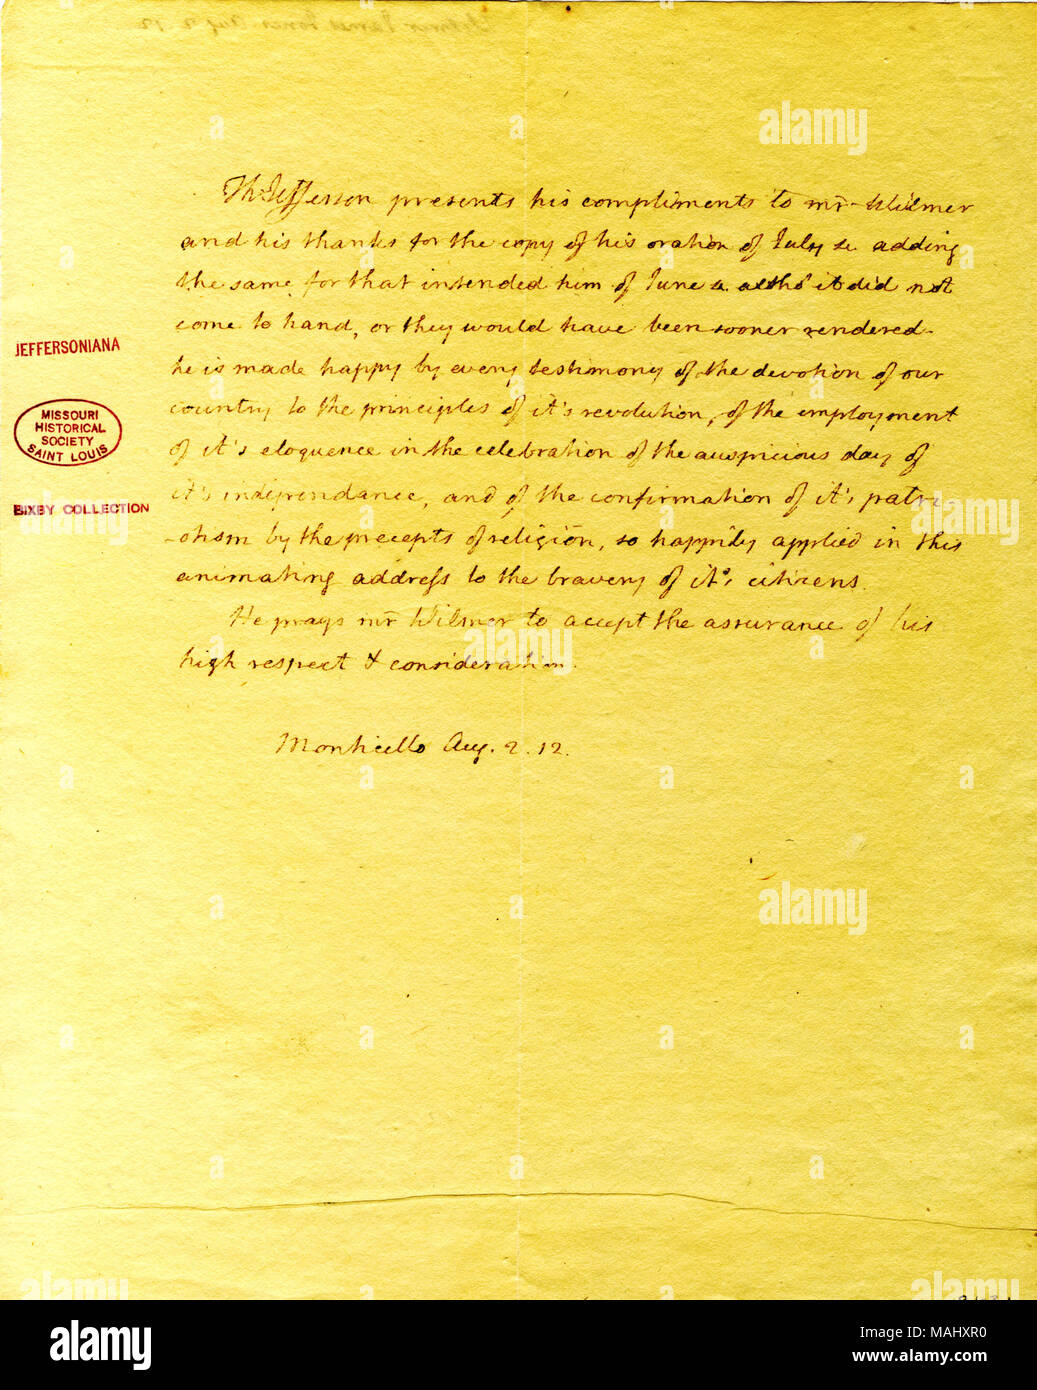 Th: Jefferson presents his compliments to mr Wilmer
and his thanks for the copy of his oration of July 4. adding
the same for that intended him of June 4. altho' it did not
come to hand, or they would have been sooner rendered.
he is made happy by every testimony of the devotion of our
country to the principles of it's revolution, of the employment
of it's eloquence in the celebration of the auspicious day of
it's independance, and of the confirmation of it's patri-
-otism by the precepts of religion, so happily applied in this
animating address to the bravery of it's citizens.
He prays mr Wilmer to accept the assurance of his
high respect & consideration.
Monticello Aug. 2. 12.
JEFFERSONIANA
MISSOURI
HISTORICAL
SOCIETY
SAINT LOUIS
BIXBY COLLECTION
alamy
a
alamy
Image ID: MAHXR0
www.alamy.com